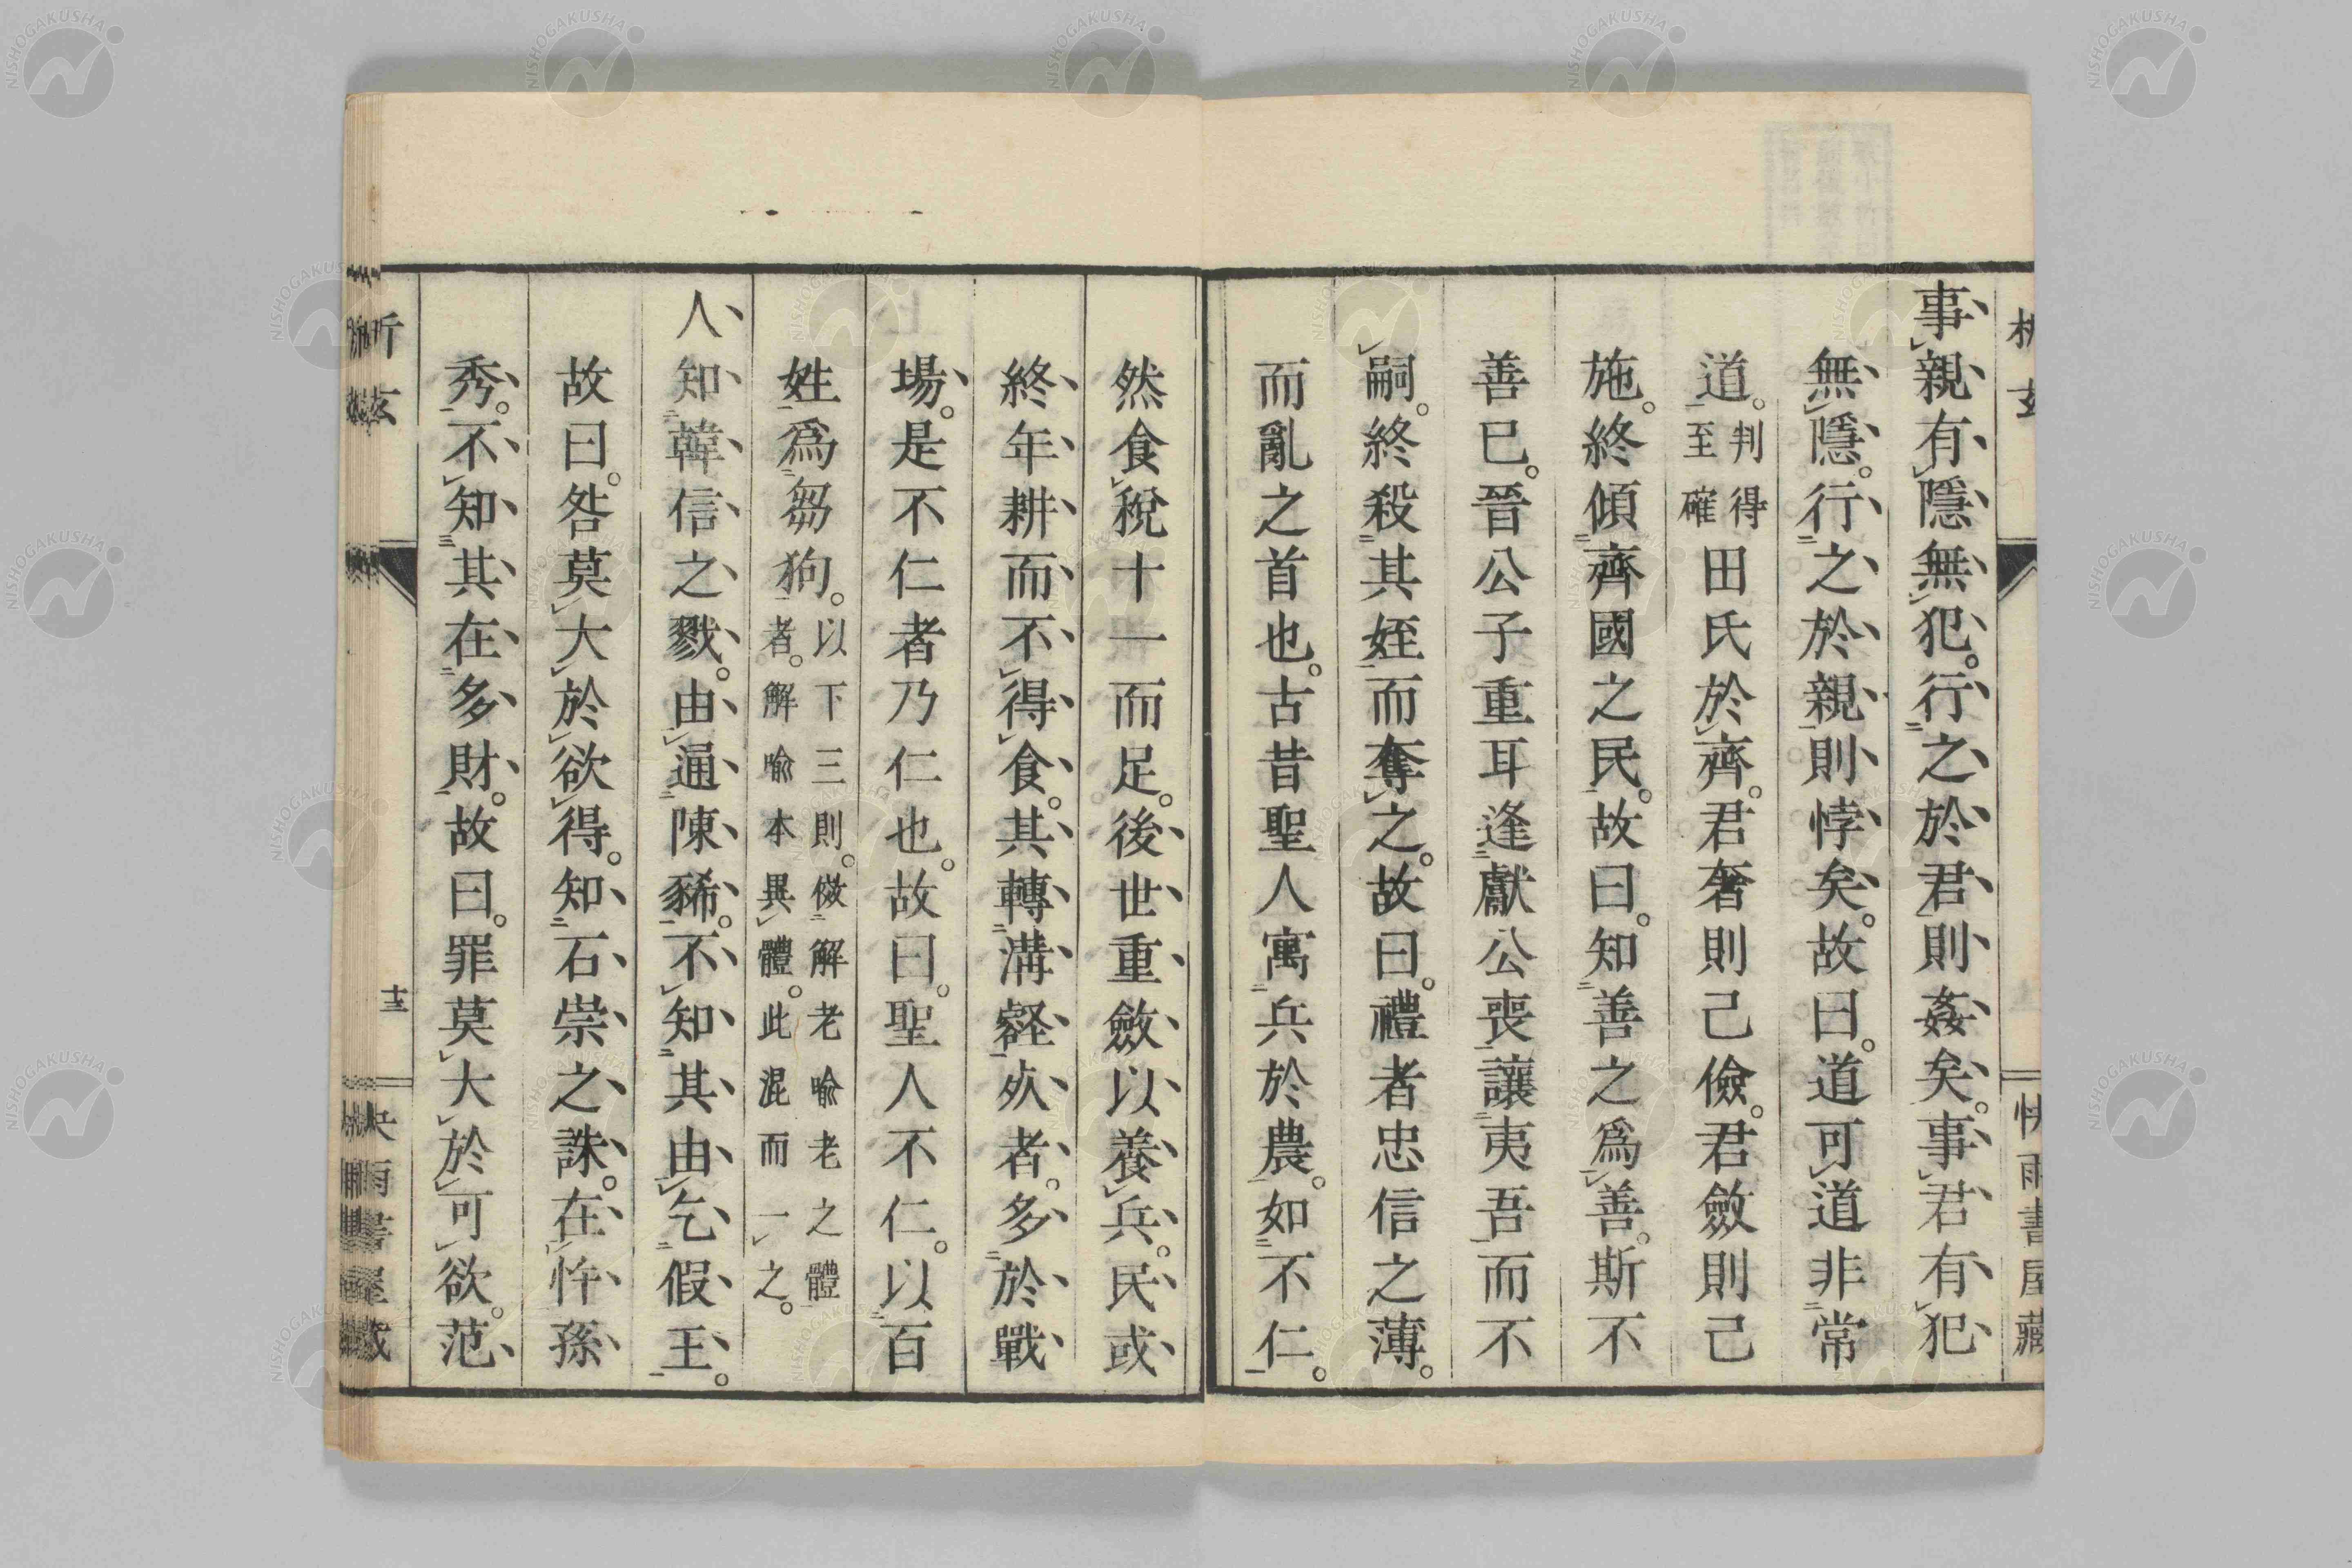 析玄
快雨書屋藏
事親有隱無犯。行之於君則姦矣。事君有犯
無隱。行之於親則悖矣。故曰。道可道非常
道。判得至確田氏於齊。君奢則己儉。君斂則己
施。終傾齊國之民。故曰。知善之爲善。斯不
善已。晉公子重耳逢獻公喪讓夷吾而不
嗣。終殺其姪而奪之。故曰。禮者忠信之薄。
而亂之首也。古昔聖人寓兵於農。如不仁。
然食稅十一而足。後世重斂以養兵。民或
終年耕而不得食。其轉溝壑㱥者。多於戰
場。是不仁者乃仁也。故曰。聖人不仁。以百
姓爲芻狗。以下三則。倣解老喻老之體者。解喻本異體。此混而一之。
人知韓信之戮。由通陳豨。不知其由乞假王。
故曰。咎莫大於欲得。知石崇之誅。在忤孫
秀。不知其在多財。故曰。罪莫大於可欲。范
析玄
十三
快雨書屋藏
NISHOGAKUSHA